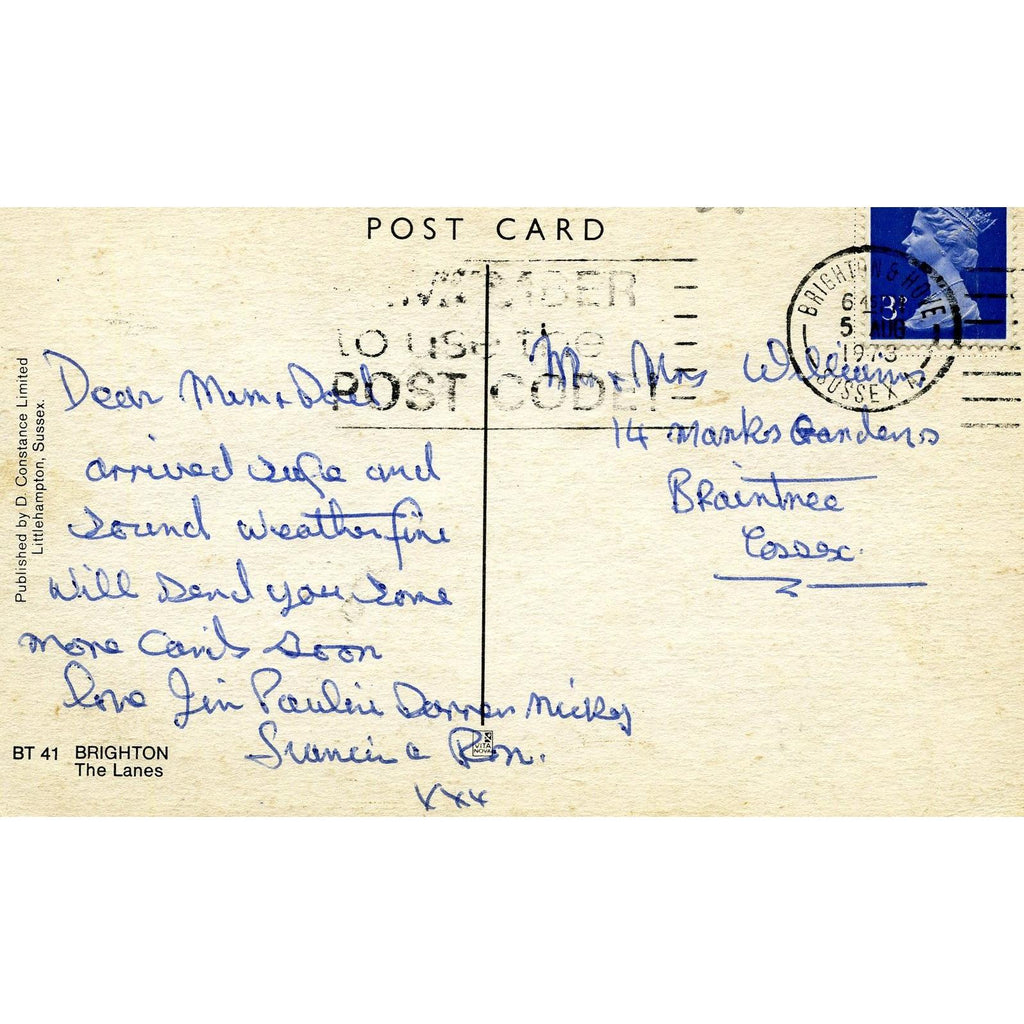 POST CARD
REMEMBER
to use the
POST CODE!
BRIGHTON & HOVE
5 AUG
1973
SUSSEX
3
Dear Mum + Dad
arrived safe and
sound weather fine
will send you some
more cards soon
love Jim Pauline Darren Micky
Ron.
xxx
Mr + Mrs Williams
14 Manks Gardens
Braintree
Essex.
Published by D. Constance Limited
Littlehampton, Sussex.
BT 41 BRIGHTON
The Lanes
VITA
NOVA